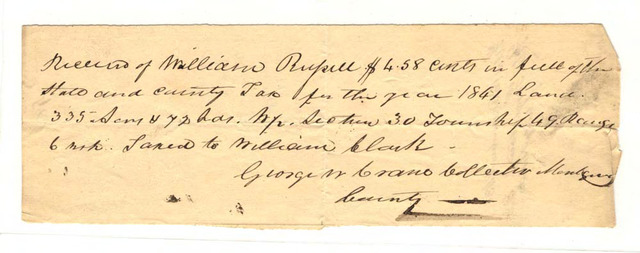 Received of William Russell $4.58 cents in full of the
State and county Tax for the year 1841. Land.
335 Acres & 72 hds. Wp. Section 30 Township 49. Range
6 wst. Taxed to William Clark -
George W Crane Collector Montgomery
County